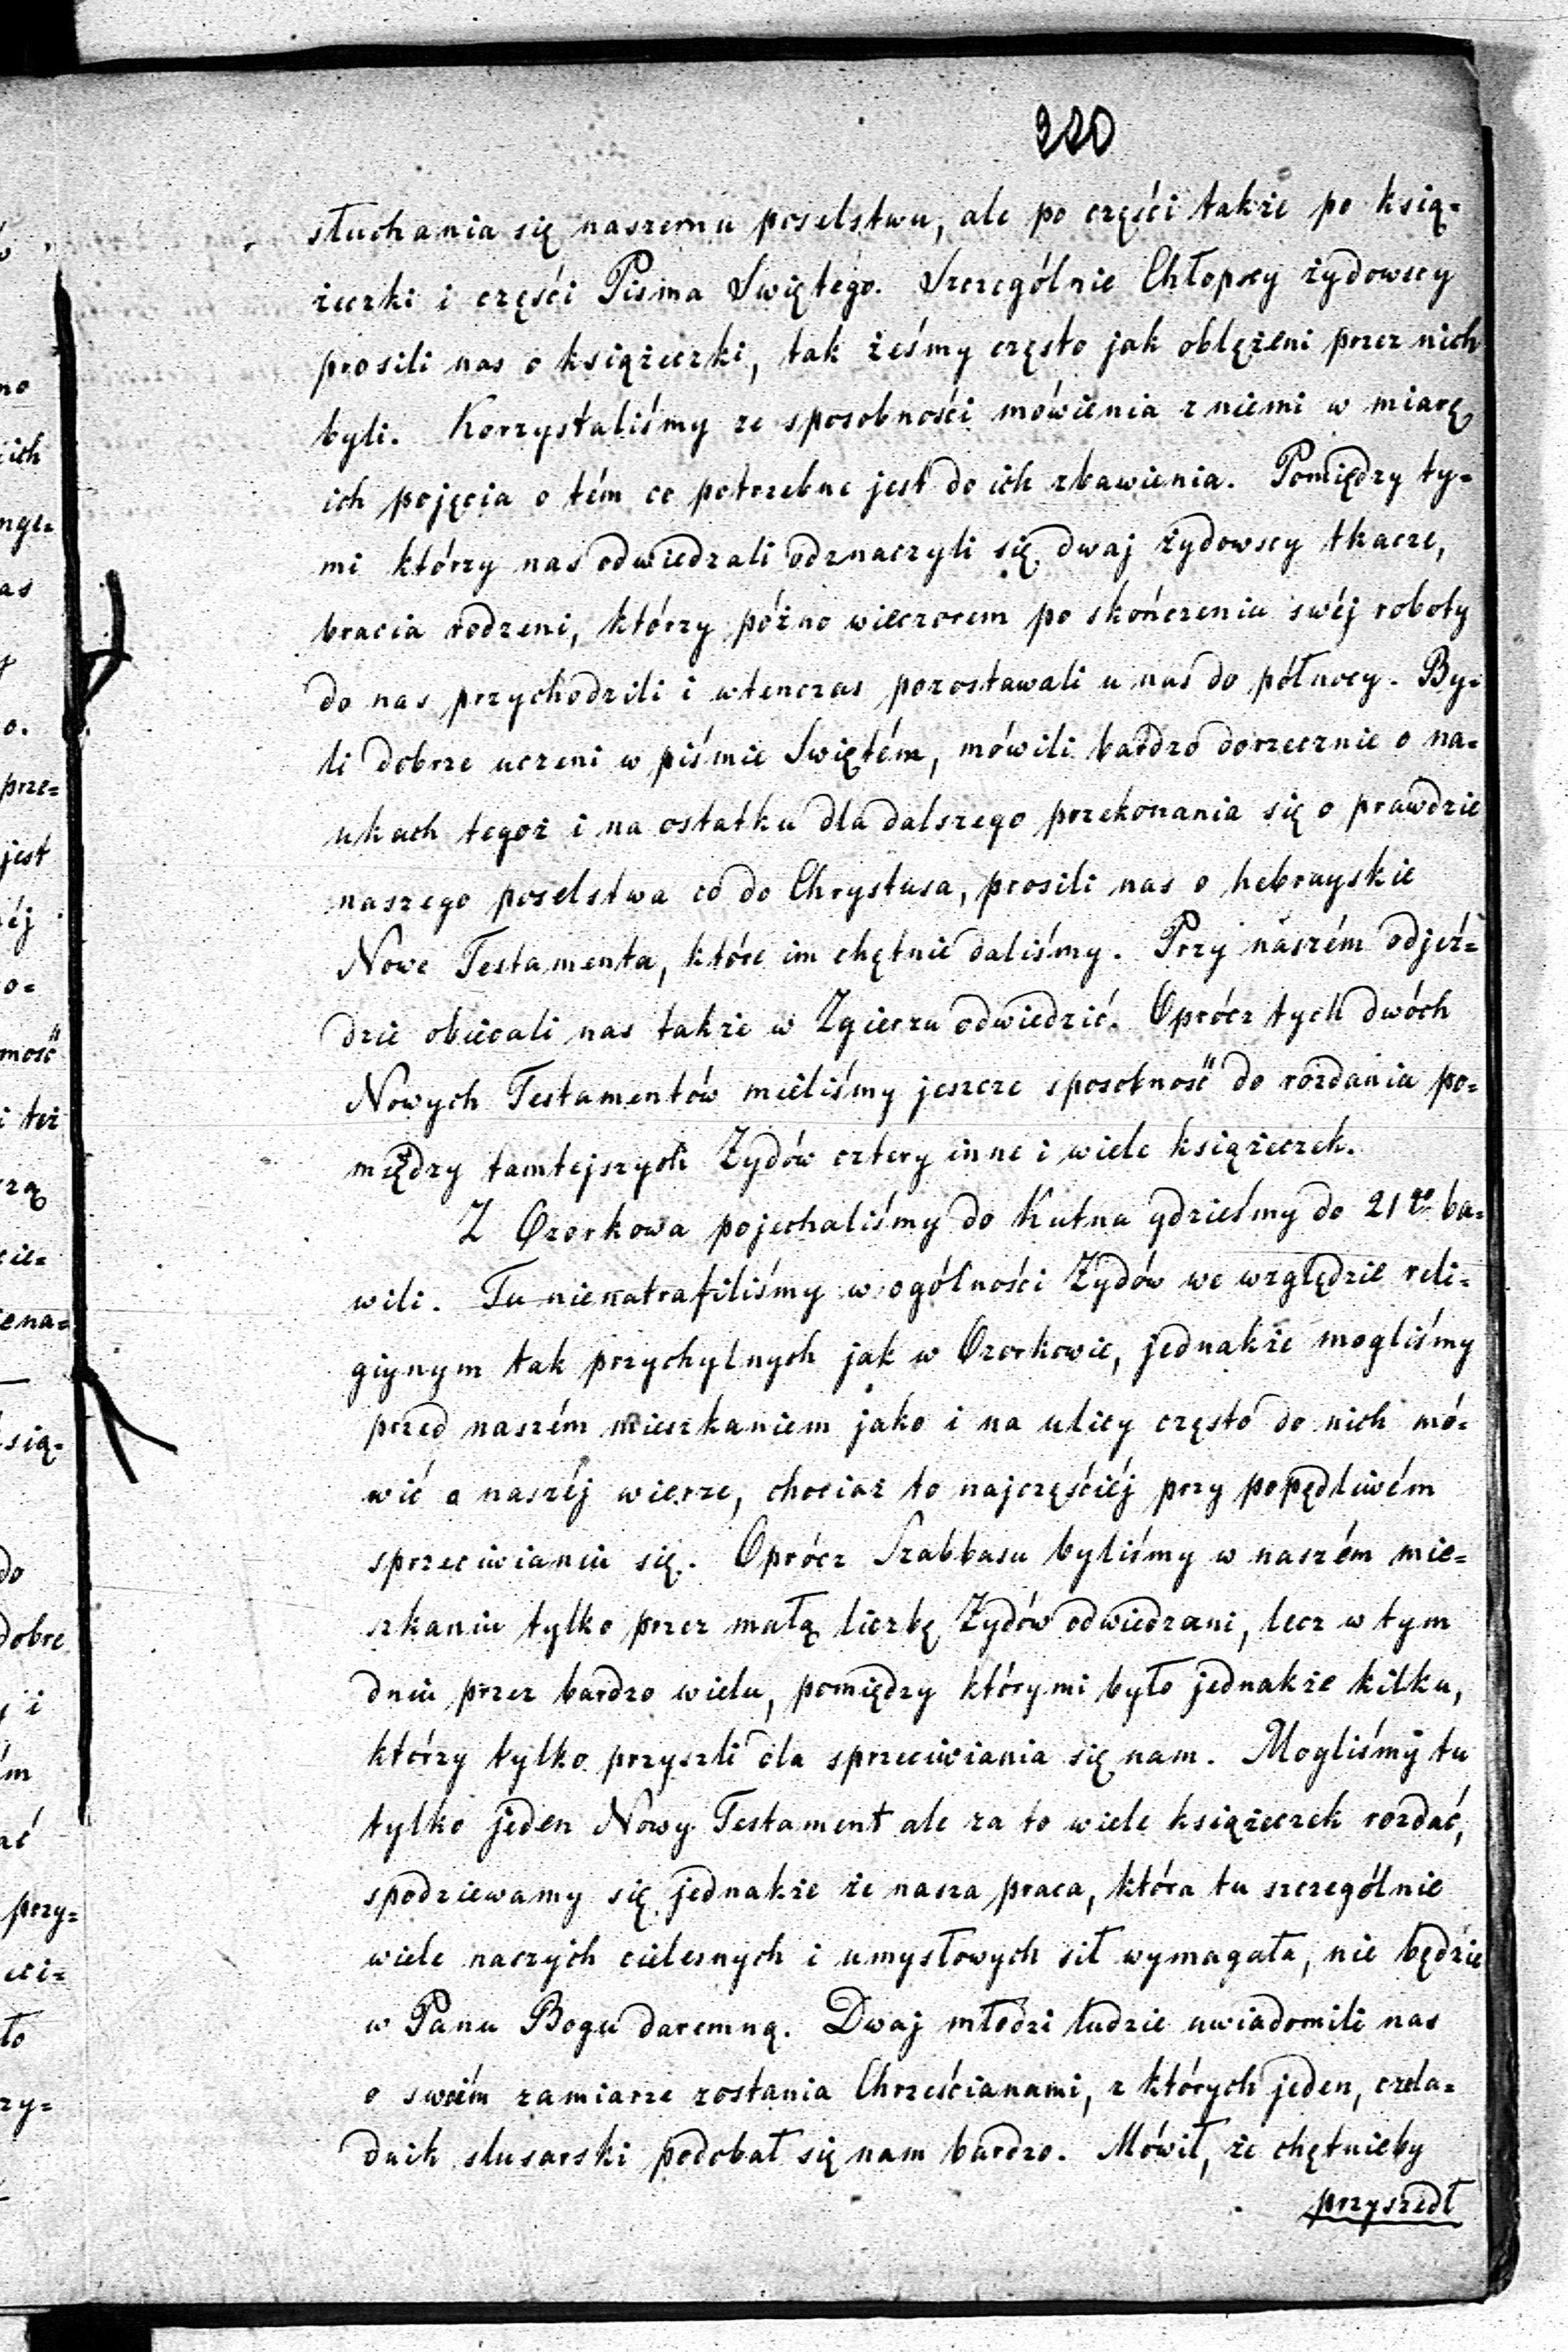 220
słuchania się naszemu poselstwu, ale po części także po ksią=
żeczki i części Pisma Swiętego. Szczególnie Chłopcy żydowscy
prosili nas o książeczki, tak żeśmy często jak oblężeni przez nich
byli. Korzystaliśmy ze sposobności mówienia z niemi w miarę
ich pojęcia o tém co potrzebne jest do ich zbawienia. Pomiędzy ty=
mi którzy nas odwiedzali odznaczyli się dwaj żydowscy tkacze,
bracia rodzeni, którzy późno wieczorem po skończeniu swéj roboty
do nas przychodzili i wtenczas pozostawali u nas do północy. By=
li dobrze uczeni w piśmie Swiętém, mówili bardzo dorzecznie o na=
ukach tegoż i na ostatku dla dalszego przekonania się o prawdzie
naszego poselstwa co do Chrystusa, prosili nas o hebrayskie
Nowe Testamenta, które im chętnie daliśmy. Przy naszém odjeź=
dzie obiecali nas także w Zgierzu odwiedzić. Oprócz tych dwóch
Nowych Testamentów mieliśmy jeszcze sposobność do rozdania po=
między tamtejszych Żydów cztery inne i wiele książeczek.
Z Ozorkowa pojechaliśmy do Kutna gdzieśmy do 21go ba=
wili. Tu nienatrafiliśmy w ogólności Żydów we względzie reli=
giynym tak przychylnych jak w Ozorkowie, jednakże mogliśmy
przed naszém mieszkaniem jako i na ulicy często do nich mó=
wić o naszéj wierze, chociaż to najczęściéj przy popędliwém
sprzeciwianiu się. Oprócz Szabbasu byliśmy w naszém mie=
szkaniu tylko przez małą liczbę Żydów odwiedzani, lecz w tym
dniu przez bardzo wielu, pomiędzy którymi było jednakże kilku,
którzy tylko przyszli dla sprzeciwiania się nam. Mogliśmy tu
tylko jeden Nowy Testament ale za to wiele książeczek rozdać,
spodziewamy się jednakże że nasza praca, która tu szczególnie
wiele naczych cielesnych i umysłowych sił wymagała, nie będzie
w Panu Bogu daremną. Dwaj młodzi ludzie uwiadomili nas
o swoém zamiarze zostania Chrześcianami, z których jeden, czela=
dnik slusarski podobał się nam bardzo. Mówił, że chętnieby
przyszedł